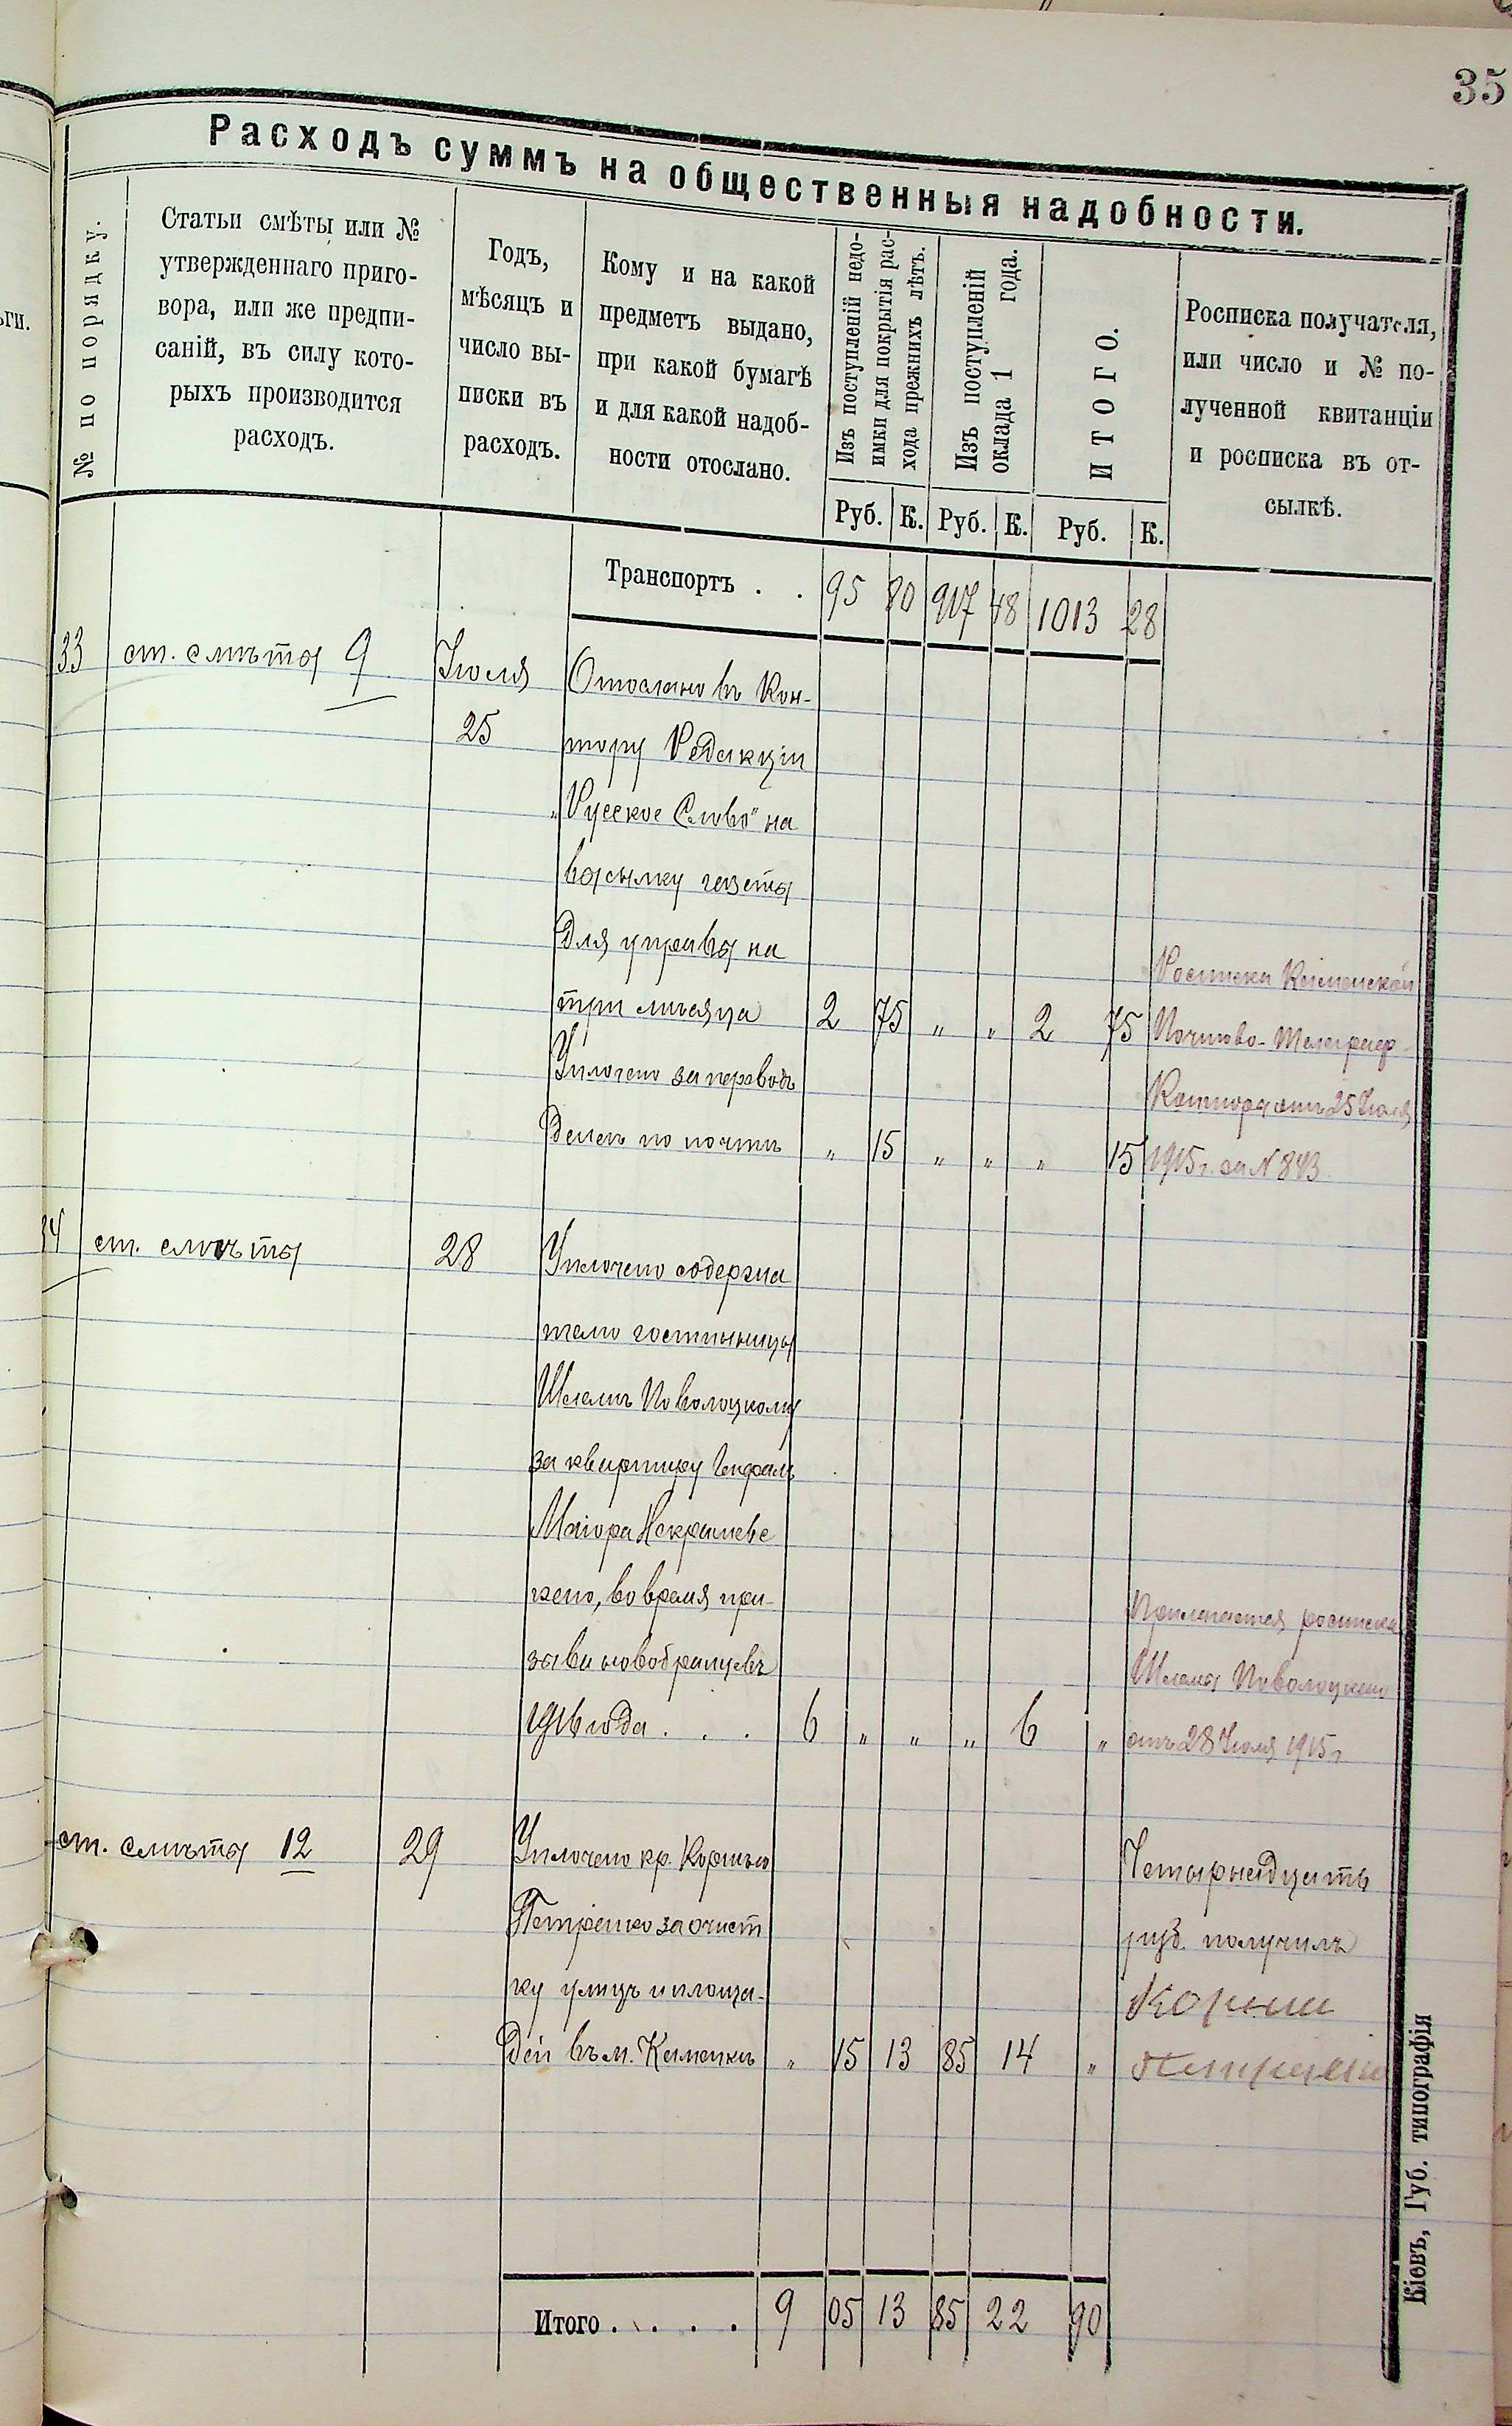 35
Расходъ суммъ на общественныя надобности.
№ по порядку.
Статьи смѣты или №
утвержденнаго приго-
вора, или же предпи-
саній, въ силу кото-
рыхъ производится
расходъ.
Годъ,
мѣсяцъ и
число вы-
писки въ
расходъ.
Кому и на какой
предметъ выдано,
при какой бумагѣ
и для какой надоб-
ности отослано.
Изъ поступленій недо-
имки для покрытія рас-
хода прежнихъ лѣтъ.
Изъ поступленій
оклада 1 года.
ИТОГО.
Росписка получателя,
или число и № по-
лученной квитанціи
и росписка въ от-
сылкѣ.
Руб. К. Руб. К. Руб. К.
Транспортъ . . 95 80 917 48 1013 28
33 ст. смѣты 9 Іюля Отослано въ Кон-
25 тору Редакціи
„Русское Слово" на
высылку газеты
для управы на
Росписка Каменской
три мѣсяца 2 75 „ „ 2 75 Почтово-Телеграф
Уплочено за переводъ
Конторы отъ 25 Іюля
денегъ по почтѣ „ 15 „ „ „ 15 1915 г. за N 843
34 ст. смѣты 28 Уплочено содержа
телю гостинницы
Шлемѣ Поволоцкому
за квартиру Генерал
Маіора
во время при-
Прилагается росписка
зыва новобранцевъ
Шлемы Поволоцкаго
1916 года . . . 6 „ „ „ 6 „ отъ 28 Іюля 1915 г
ст. смѣты 12 29 Уплочено кр. Корнію Четырнадцать
Петренко за очист руб. получилъ
ку улицъ и площа- Корнии
дей въ м. Каменкѣ „ 15 13 85 14 „ Петренко
Итого . . . . 9 05 13 85 22 90
Кіевъ, Губ. типографія
ьги.